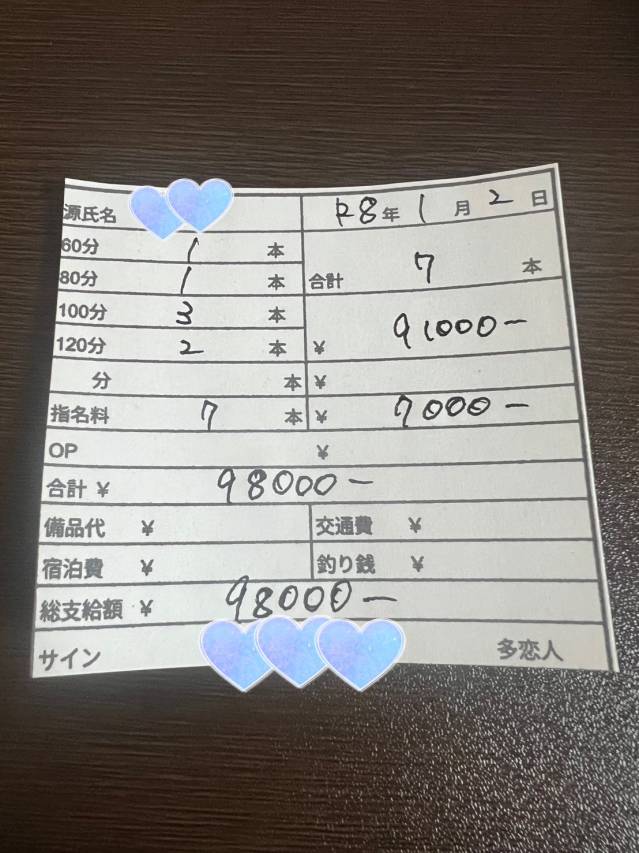 源氏名
R8年 1月 2日
60分 1 本
80分 1 本
合計 7 本
100分 3 本
120分 2 本
¥ 91000-
分 本 ¥
指名料 7 本 ¥ 7000-
OP ¥
合計 ¥ 98000-
備品代 ¥ 交通費 ¥
宿泊費 ¥ 釣り銭 ¥
総支給額 ¥ 98000-
サイン 多恋人